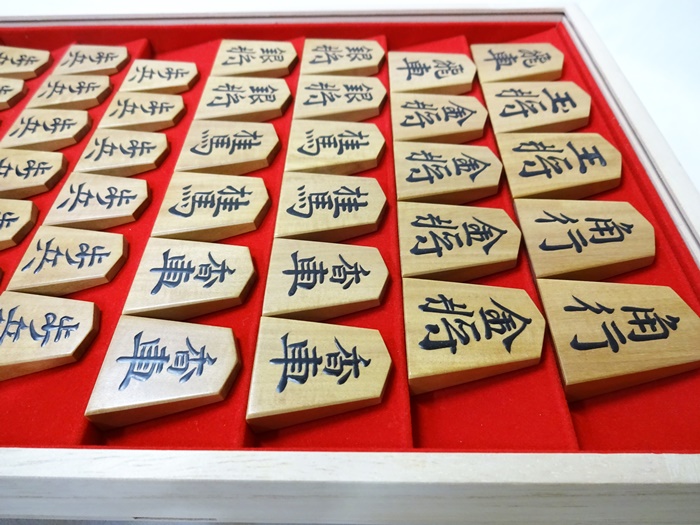 飛車
王将
王将
角行
角行
飛車
金将
金将
金将
金将
銀将
銀将
桂馬
桂馬
香車
香車
銀将
銀将
桂馬
桂馬
香車
香車
歩兵
歩兵
歩兵
歩兵
歩兵
歩兵
歩兵
歩兵
歩兵
歩兵